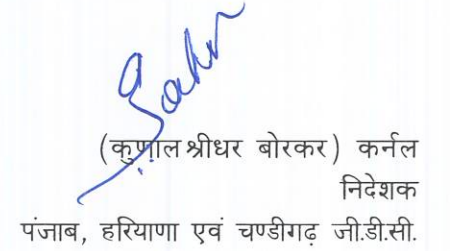 (कुणाल श्रीधर बोरकर) कर्नल
निदेशक
पंजाब, हरियाणा एवं चण्डीगढ़ जी.डी.सी.